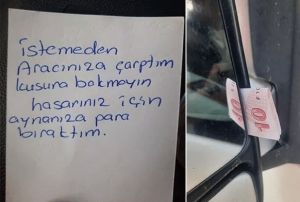 istemeden
Aracınıza çarptım
kusura bakmayın
hasarınız için
aynanıza para
bıraktım.
10
10